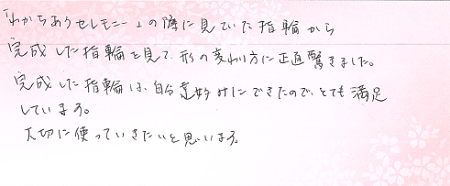 「わかちあうセレモニー」の際に見ていた指輪から
完成した指輪を見て、形の変わり方に正直驚きました。
完成した指輪は、自分達好みにできたので、とても満足
しています。
大切に使っていきたいと思います。